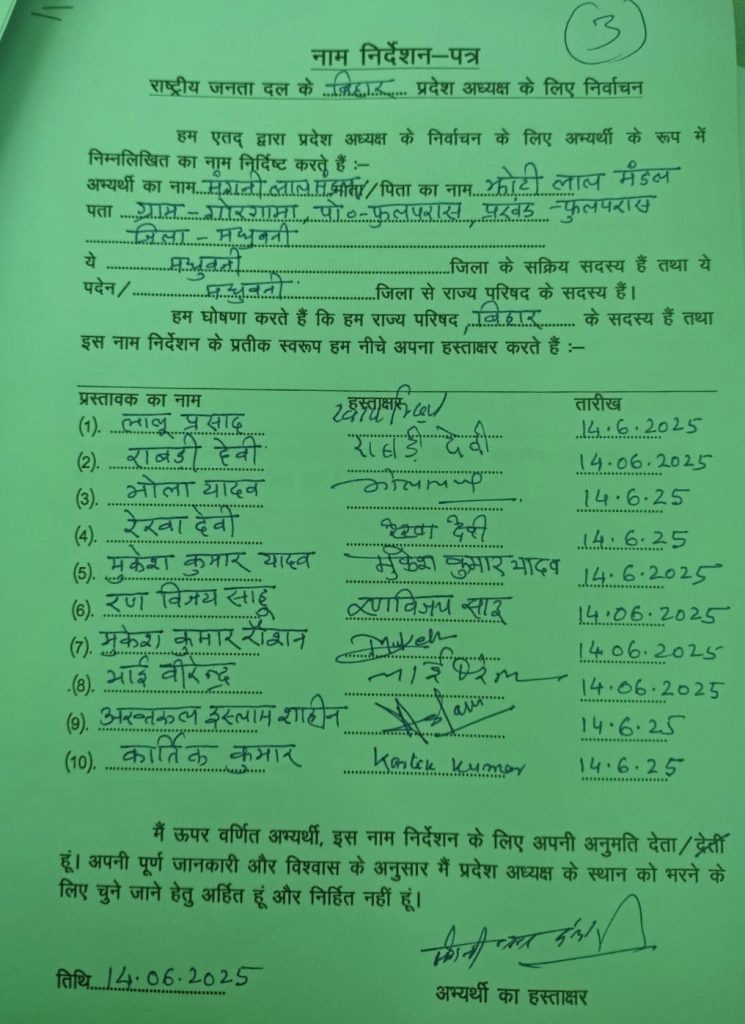 3
नाम निर्देशन–पत्र
राष्ट्रीय जनता दल के बिहार प्रदेश अध्यक्ष के लिए निर्वाचन
हम एतद् द्वारा प्रदेश अध्यक्ष के निर्वाचन के लिए अभ्यर्थी के रूप में
निम्नलिखित का नाम निर्दिष्ट करते हैं :–
अभ्यर्थी का नाम मंगनी लाल मंडल माता/पिता का नाम झोटी लाल मंडल
पता ग्राम – गोरगामा, पो०-फुलपरास, प्रखंड -फुलपरास
जिला - मधुबनी
ये मधुबनी जिला के सक्रिय सदस्य हैं तथा ये
पदेन/ मधुबनी जिला से राज्य परिषद के सदस्य हैं।
हम घोषणा करते हैं कि हम राज्य परिषद, बिहार के सदस्य हैं तथा
इस नाम निर्देशन के प्रतीक स्वरूप हम नीचे अपना हस्ताक्षर करते हैं :–
प्रस्तावक का नाम हस्ताक्षर तारीख
(1). लालू प्रसाद 14.6.2025
(2). राबड़ी देवी राबड़ी देवी 14.06.2025
(3). भोला यादव 14.6.25
(4). रेखा देवी रेखा देवी 14.6.25
(5). मुकेश कुमार यादव मुकेश कुमार यादव 14.6.2025
(6). रण विजय साहू रणविजय साहू 14.06.2025
(7). मुकेश कुमार रौशन 14.06.2025
(8). भाई वीरेन्द्र 14.06.2025
(9). अख्तरूल इस्लाम शाहीन 14.6.25
(10). कार्तिक कुमार Kartik Kumar 14.6.25
मैं ऊपर वर्णित अभ्यर्थी, इस नाम निर्देशन के लिए अपनी अनुमति देता/देती
हूं। अपनी पूर्ण जानकारी और विश्वास के अनुसार मैं प्रदेश अध्यक्ष के स्थान को भरने के
लिए चुने जाने हेतु अर्हित हूं और निर्हित नहीं हूं।
तिथि 14.06.2025
अभ्यर्थी का हस्ताक्षर